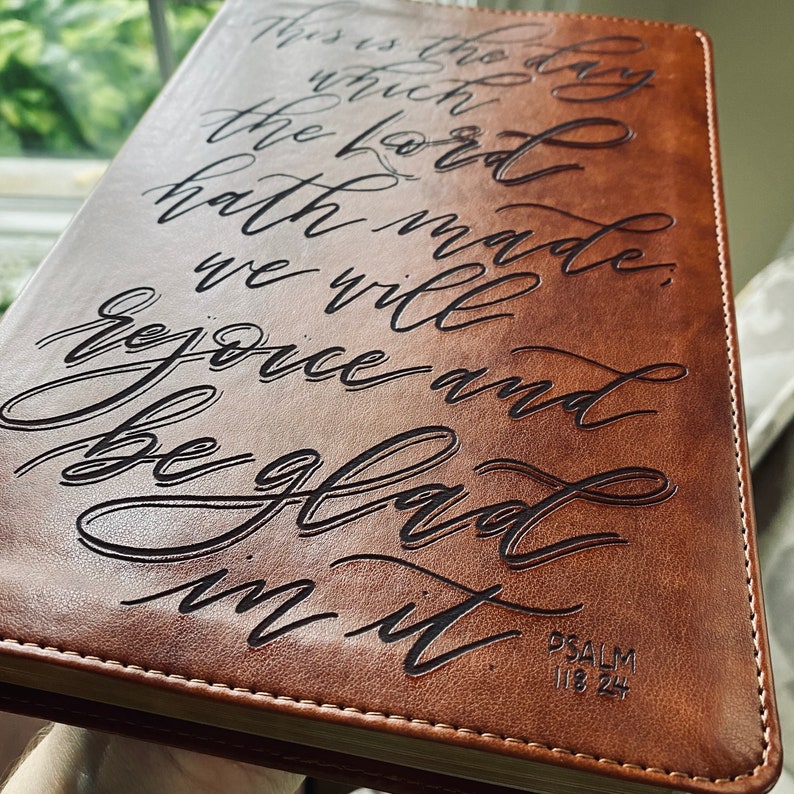 This is the day
which
the Lord
hath made;
we will
rejoice and
be glad
in it
PSALM
118 24